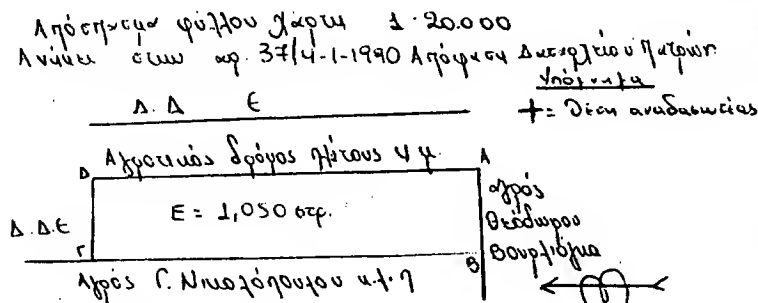 Απόσπασμα φύλλου χάρτη 1:20.000
Ανήκει στην αρ. 37/4-1-1990 Απόφαση Δασαρχείου Πατρών
Υπόμνημα
+ = Θέση αναδασωτέας
Δ. Δ Ε
Αγροτικός δρόμος πλάτους 4 μ.
Δ Α
Ε = 1,050 στρ.
αγρός
Θεόδωρου
Δ.Δ.Ε
Γ Β
Αγρός Γ. Νικολόπουλου κ.λ.π